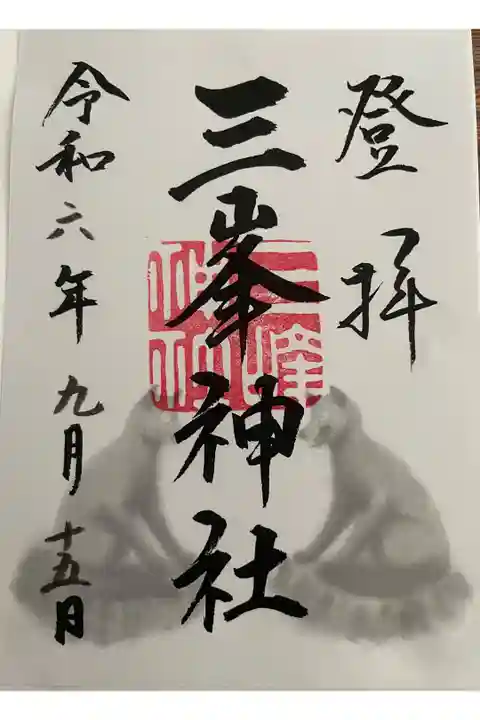 登拝
三峯神社
三峰神社
令和六年九月十五日